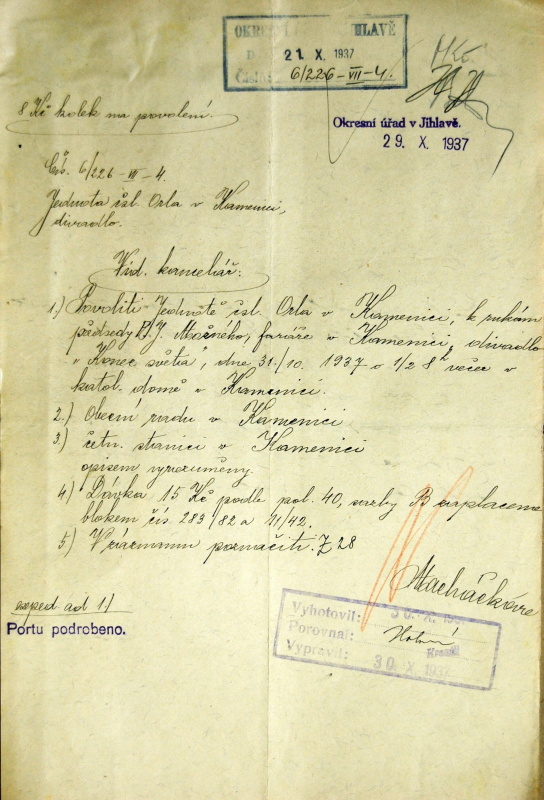 OKRES JIHLAVĚ
21. X. 1937
Číslo: 6/226-VII-4.
8 Kč kolek na povolení.
Okresní úřad v Jihlavě.
29. X. 1937
Čís. 6/226-VII-4.
Jednota čsl. Orla v Kamenici,
divadlo.
Vid. kancelář:
1.) Povoliti Jednotě čsl. Orla v Kamenici, k rukám
předsedy P. J. Možného, faráře v Kamenici, divadlo
"Konec světa", dne 31./10. 1937 o 1/2 8 h večer v
katol. domě v Kamenici.
2.) Obecní radu v Kamenici
3.) četn. stanici v Kamenici
opisem vyrozuměny.
4.) Dávka 15 Kč podle pol. 40, sazby B zaplacena
blokem čís. 283/82 a 11/42.
5) V záznamu poznačiti. Z 28
Macháčková
exped ad 1./
Portu podrobeno.
Vyhotovil: 30. X. 1937
Porovnal:
Vypravil: 30. X. 1937